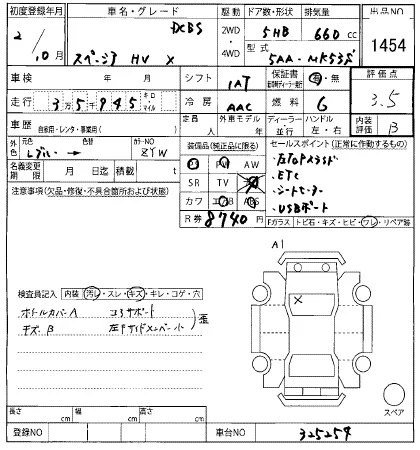 初度登録年月 車名・グレード 駆動 ドア数・形状 排気量 出品NO
2 / 10月 DCBS 2WD 5HB 660 cc 1454
スペーシア HV X 4WD 型式 5AA-MK53S
車検 年 月 シフト IAT 保証書 有・無 評価点
走行 3万5千945 キロ・マイル 冷房 AAC 燃料 G 3.5
車歴 自家用・レンタ・事業用( ) 定員 人 外車モデル 年 ディーラー・並行 ハンドル 左・右 内装評価 B
外色 元色 Lブルー 色替 カラーNO ZYW 装備品(純正品に限る) セールスポイント(正常に作動するもの)
名義変更期限 月 日迄 積載 t PS PW AW ・左右Pスライド
注意事項(欠品・修復・不具合箇所および状態) SR TV ナビ ・ETC
カワ エアB ABS ・シートヒーター
R券 8740円 ・USBポート
Fガラス トビ石・キズ・ヒビ・ワレ・リペア跡
A1
検査員記入 内装 汚レ・スレ・キズ・キレ・コゲ・穴
ボトルカバーA コアサポート
キズB 左Fサイドメンバー 歪
スペア
長さ cm 幅 cm 高さ cm
登録NO 車台NO 325257